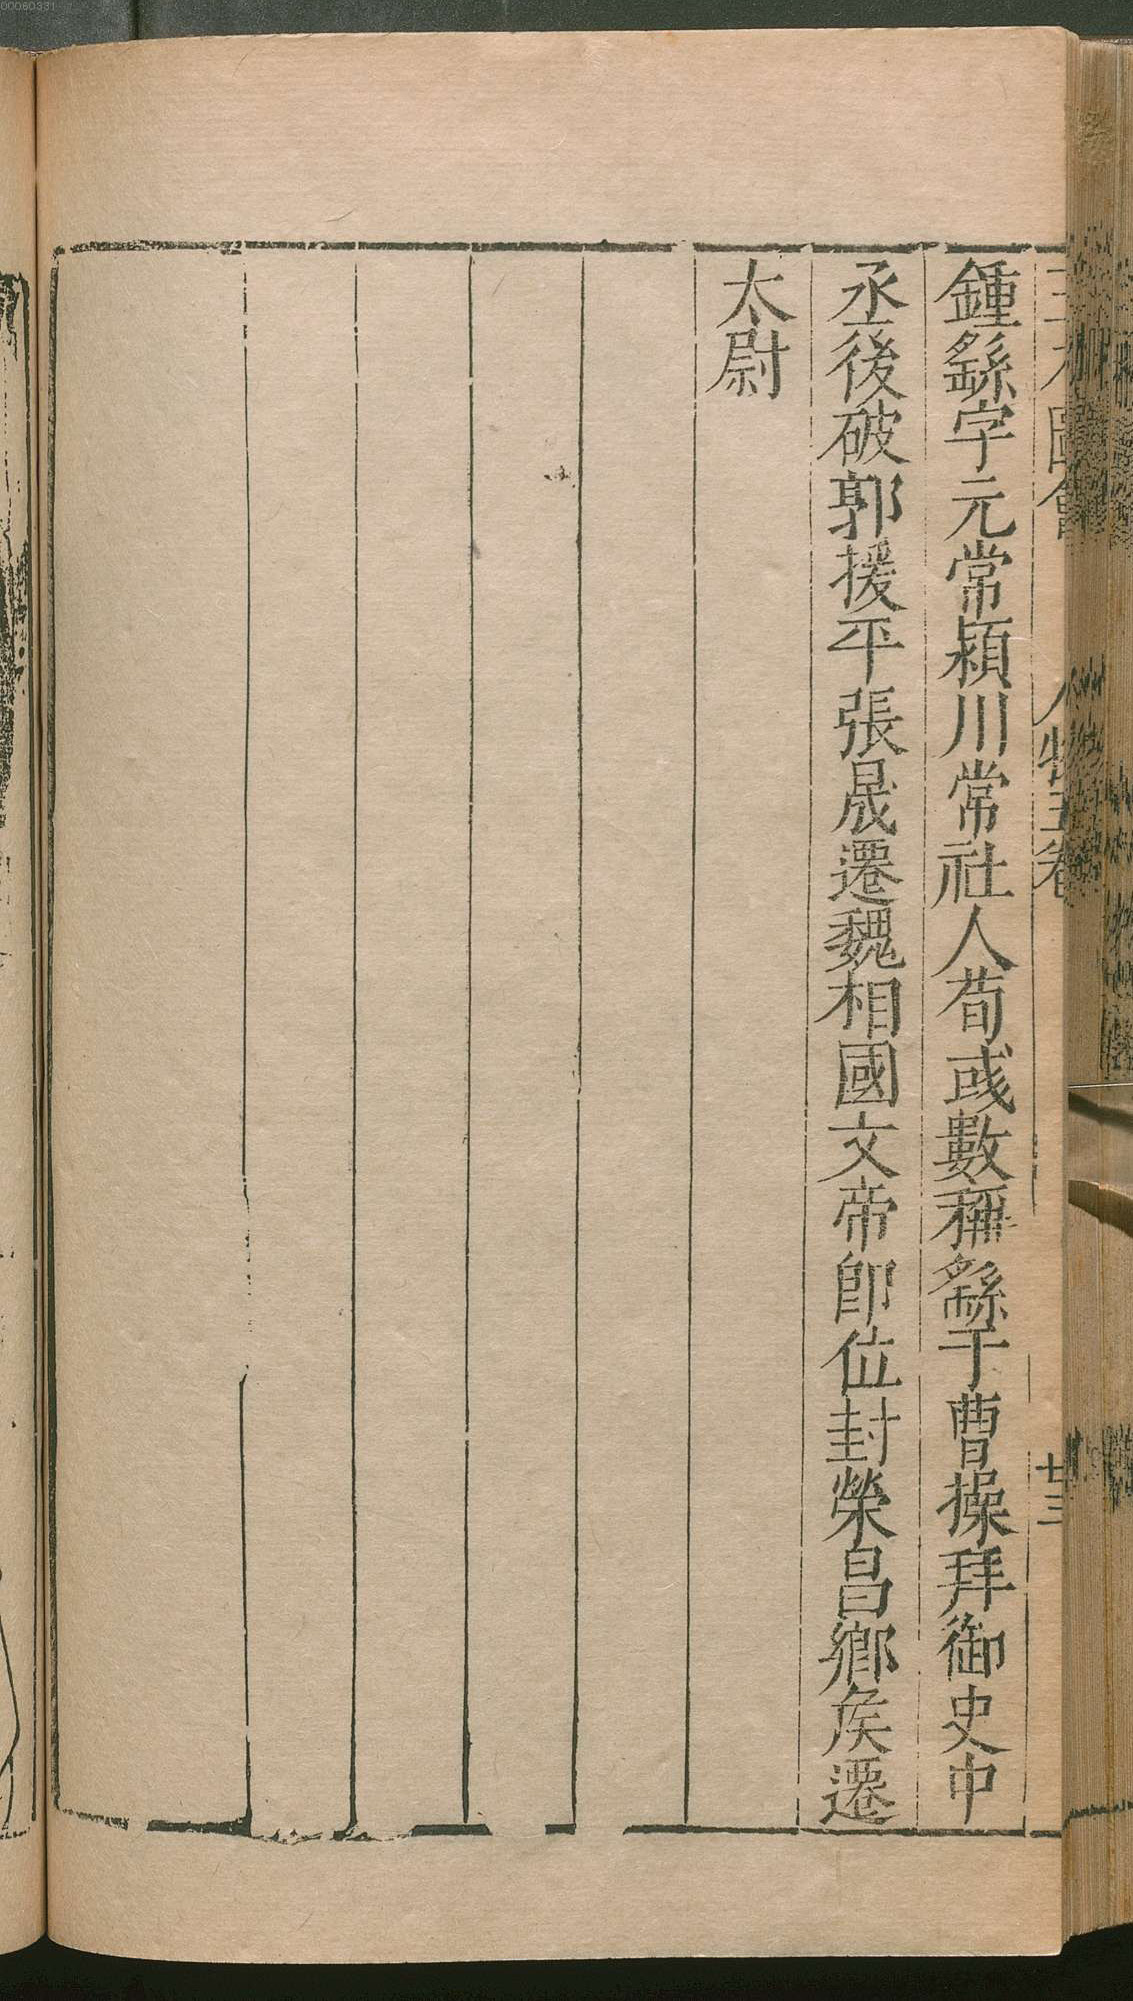 鍾繇字元常潁川常社人荀彧數稱繇于曹操拜御史中
丞後破郭援平張晟遷魏相國文帝卽位封榮昌鄉矦遷
太尉
三才圖會 人物五卷 廿三
00060331